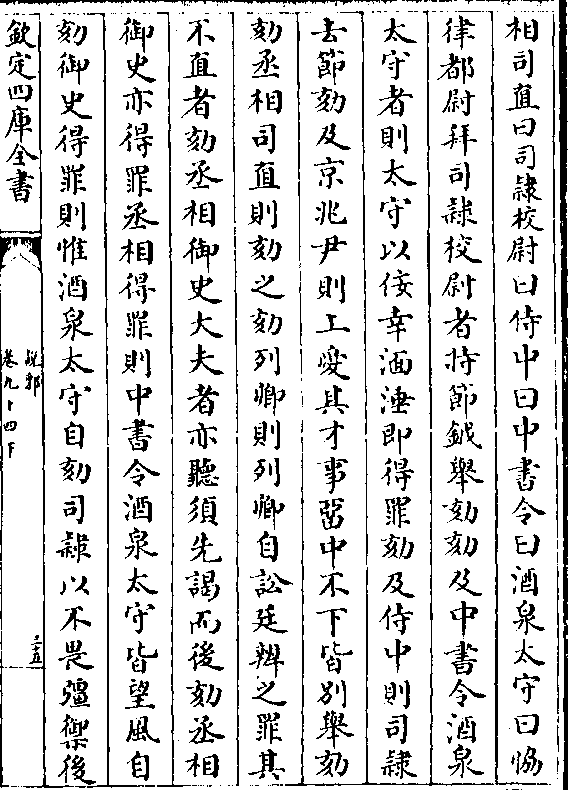 相司直曰司隷校尉曰侍中曰中書令曰酒泉太守曰恊
律都尉拜司隷校尉者持節鉞舉劾劾及中書令酒泉
太守者則太守以佞幸湎淫即得罪劾及侍中則司隷
去節劾及京兆尹則上愛其才事留中不下皆别舉劾
劾丞相司直則劾之劾列卿則列卿自訟廷辨之罪其
不直者劾丞相御史大夫者亦聽須先謁而後劾丞相
御史亦得罪丞相得罪則中書令酒泉太守皆望風自
劾御史得罪則惟酒泉太守自劾司隷以不畏彊禦後
欽定四庫全書
説郛
卷九十四下
三十五